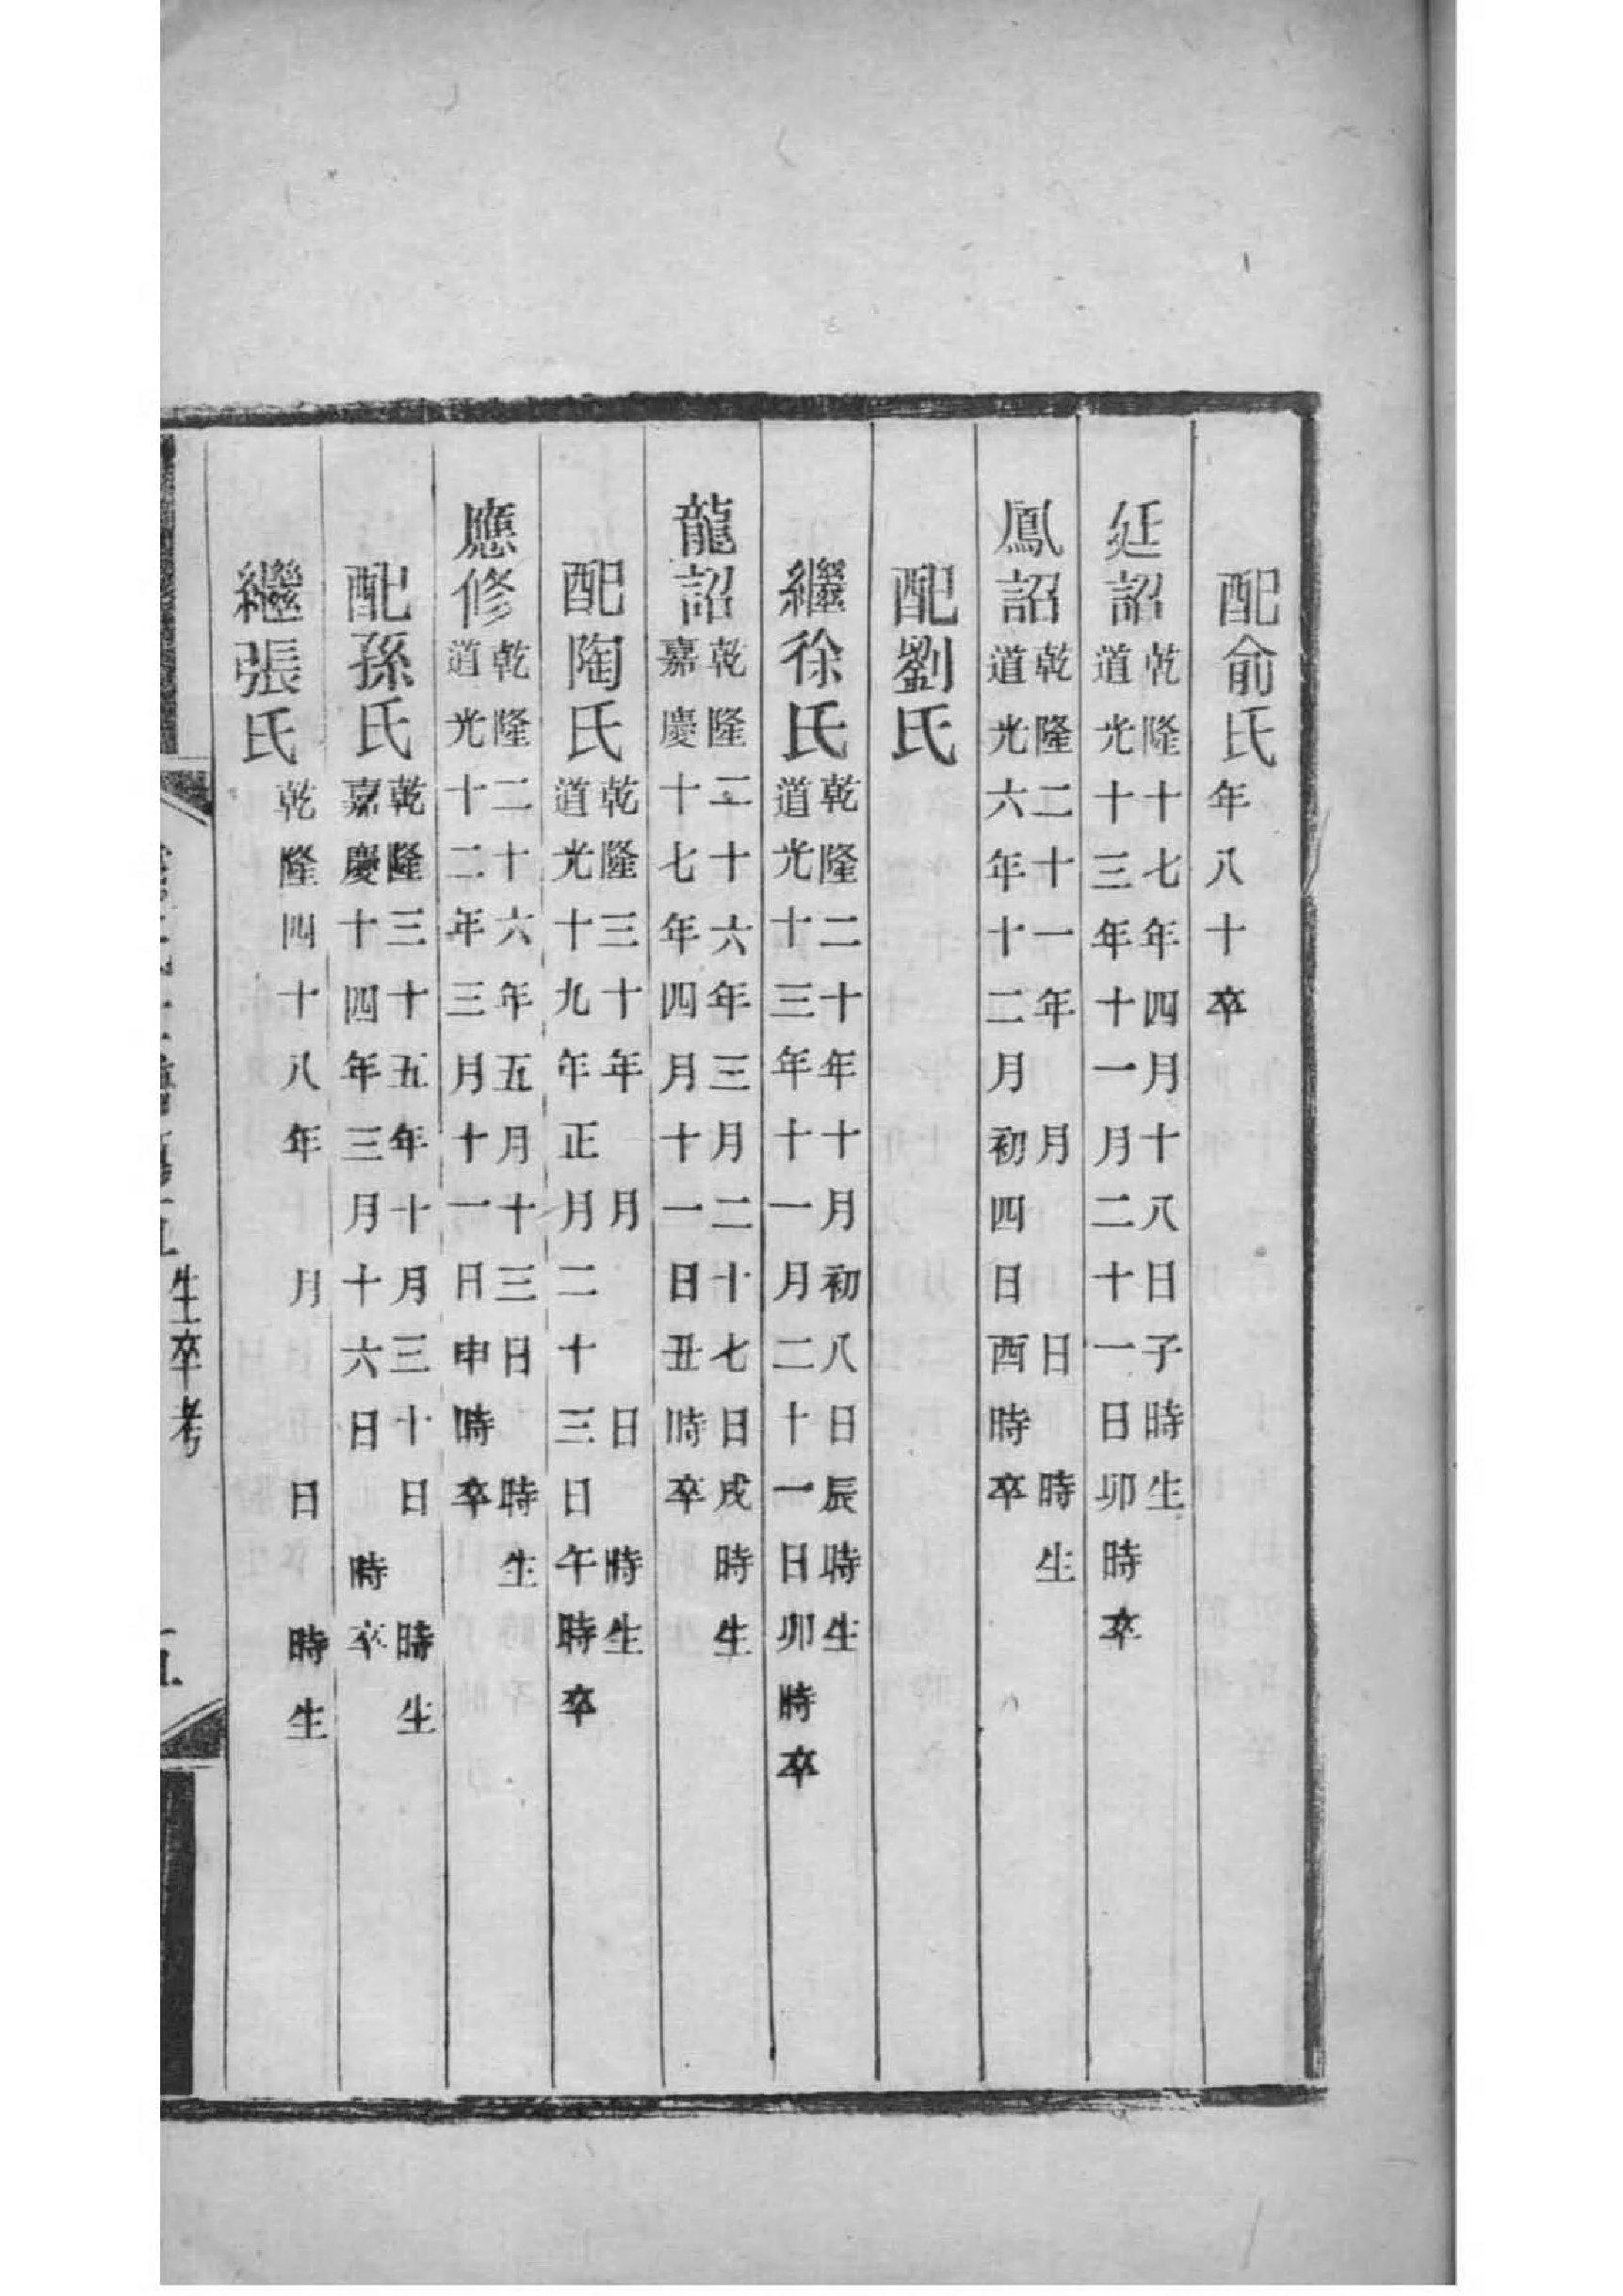 配俞氏年八十卒
延詔乾隆十七年四月十八日子時生
道光十三年十一月二十一日卯時卒
鳳詔乾隆二十一年 月 日 時生
道光六年十二月初四日酉時卒
配劉氏
繼徐氏乾隆二十年十月初八日辰時生
道光十三年十一月二十一日卯時卒
龍詔乾隆二十六年三月二十七日戌時生
嘉慶十七年四月十一日丑時卒
配陶氏乾隆三十年 月 日 時生
道光十九年正月二十三日午時卒
應修乾隆二十六年五月十三日 時生
道光十二年三月十一日申時卒
配孫氏乾隆三十五年十月三十日 時生
嘉慶十四年三月十六日 時卒
繼張氏乾隆四十八年 月 日 時生
生卒考